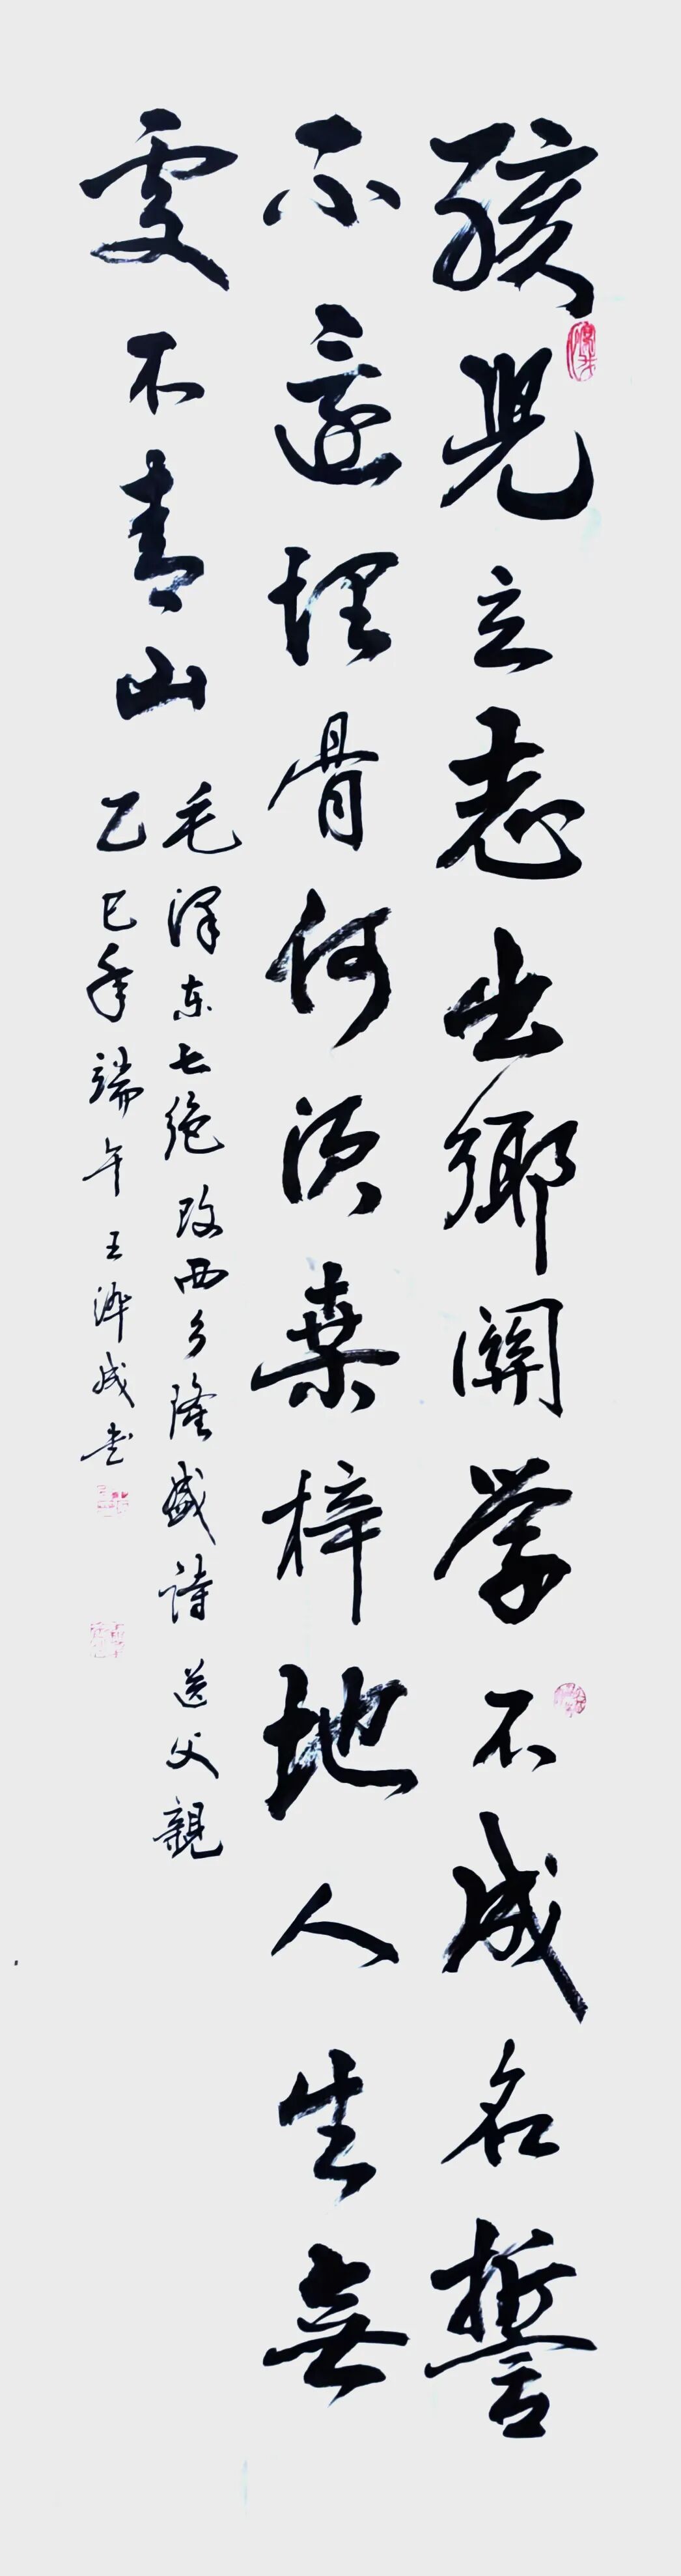 孩児立志出鄉關学不成名誓
不還埋骨何須桑梓地人生無
處不青山
毛泽东七绝改西乡隆盛詩送父親
乙巳年端午王澤成书